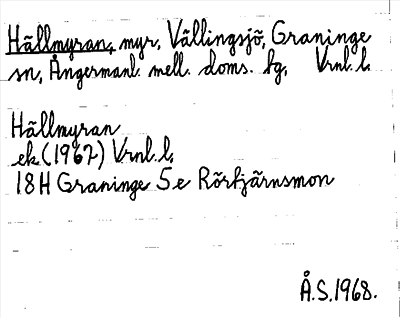 Hällmyran, myr, Vällingsjö, Graninge
sn, Ångermanl. mell. doms. fg, Vrnl. l.
Hällmyran
ek (1967) Vrnl. l.
18H Graninge 5e Rörtjärnsmon
Å.S. 1968.